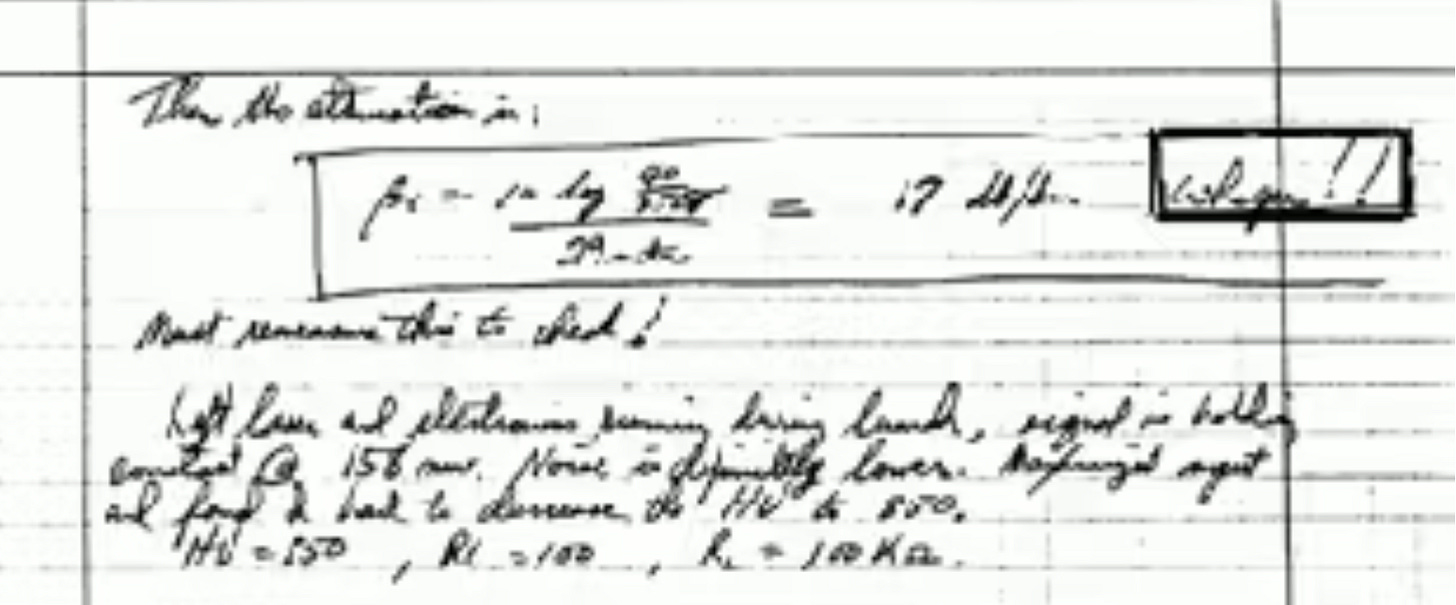 Then the attenuation is:
= 10 log = 17 db/km whoopee!!
29 m
Must remeasure this to check!
Left laser and electronics running during lunch, signal is holding
constant @ 156 mv. Noise is definitely lower. input
and found I had to decrease the HV to 550.
HV = 550 , = 100 , RL = 100 KΩ.